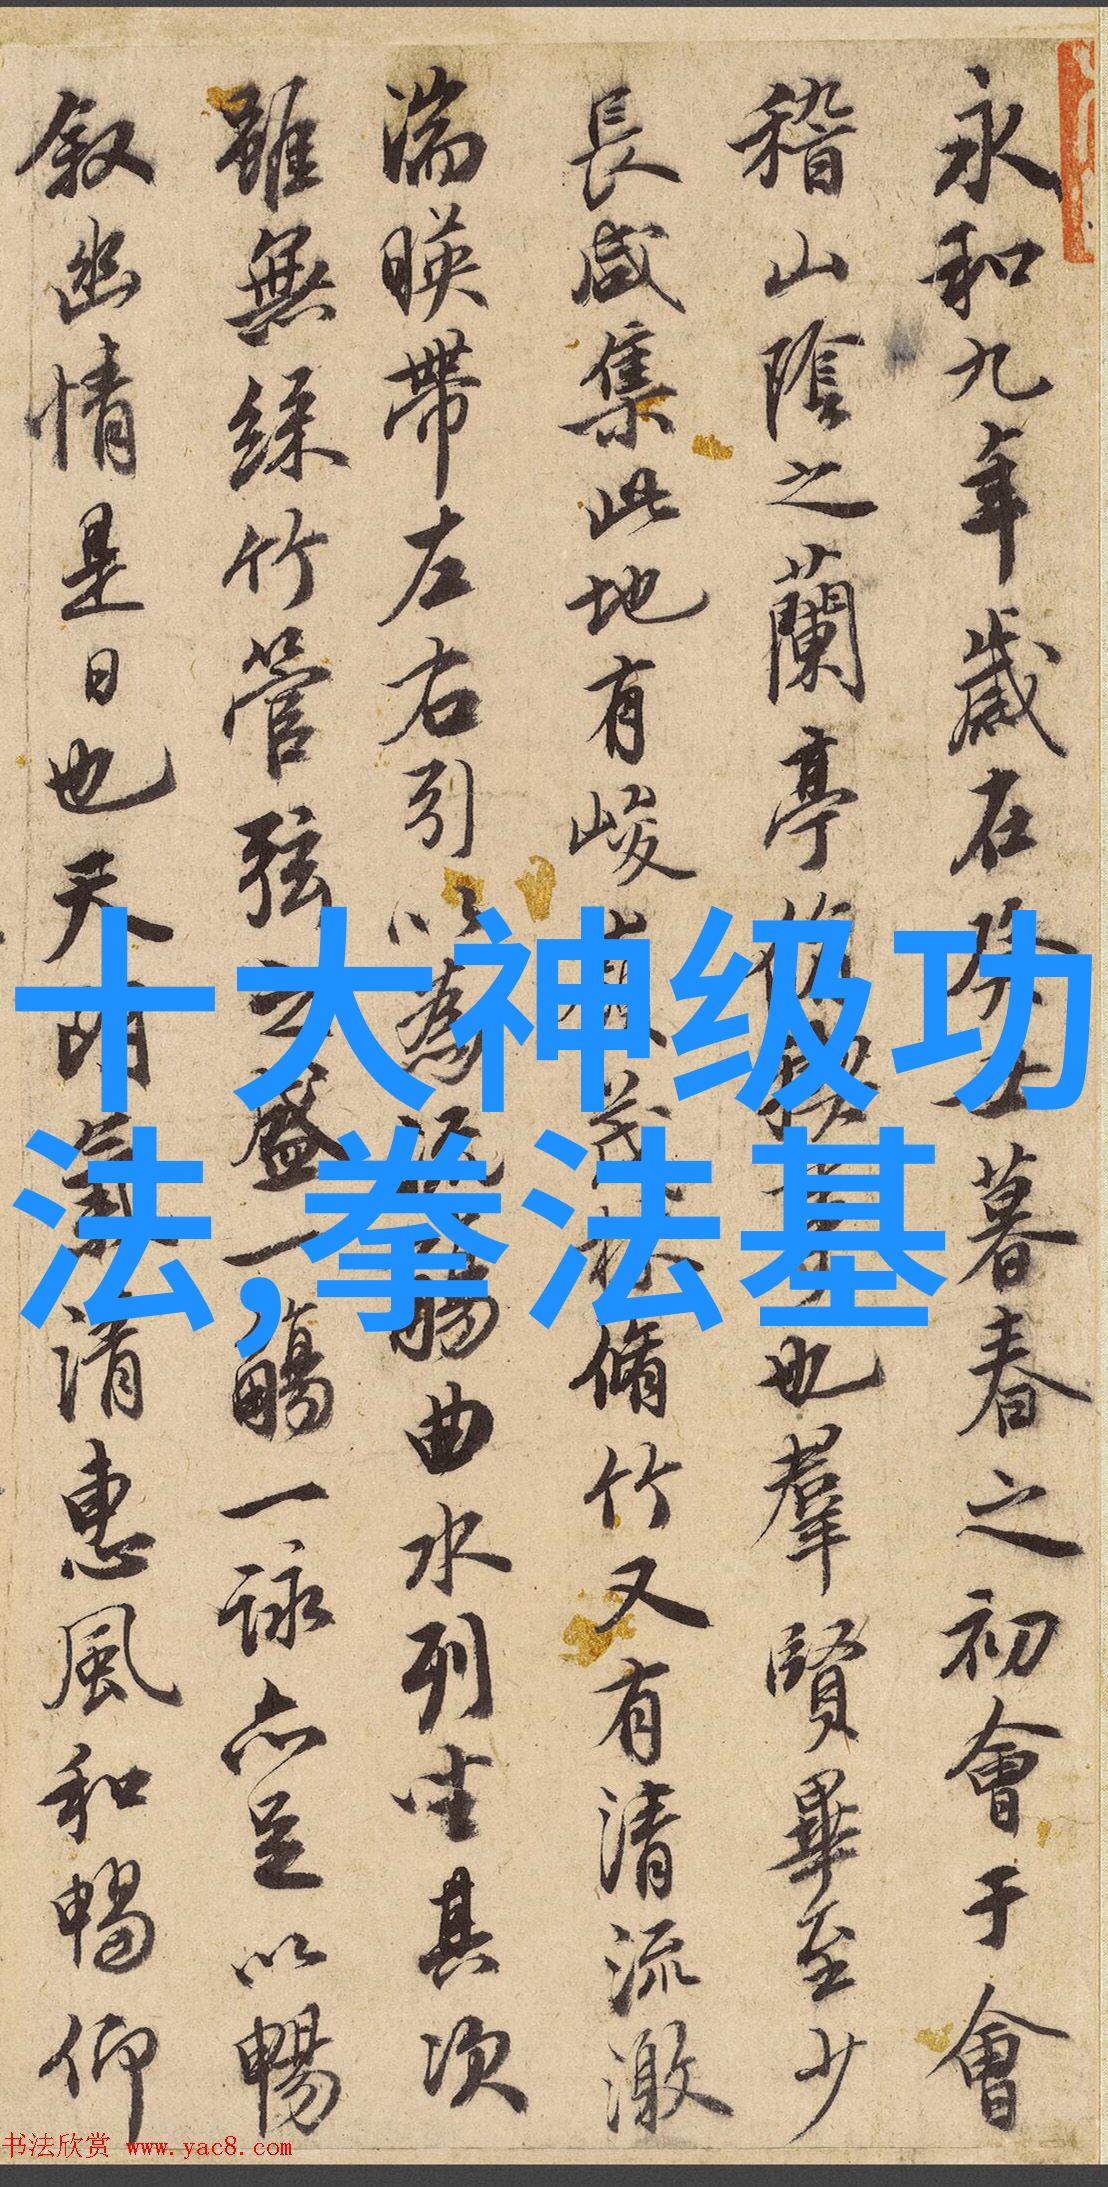 永和九年歲在癸丑暮春之初會于會
稽山陰之蘭亭脩稧事也羣賢畢至少
長咸集此地有峻領茂林脩竹又有清流激
湍暎帶左右引以為流觴曲水列坐其次
雖無絲竹管弦之盛一觴一詠亦足以暢
叙幽情是日也天朗氣清惠風和暢仰
十大神级功
法,拳法基
书法欣赏 www.yac8.com